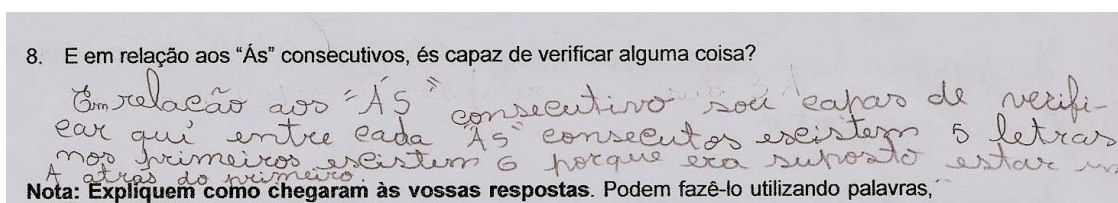 8. E em relação aos “Ás” consecutivos, és capaz de verificar alguma coisa?
Em relação aos "ÁS" consecutivo sou capas de verifi-
car qui entre cada "ÁS" consecutos escistem 5 letras
nos primeiros escistem 6 porque era suposto estar
A atras do primeiro.
Nota: Expliquem como chegaram às vossas respostas. Podem fazê-lo utilizando palavras,